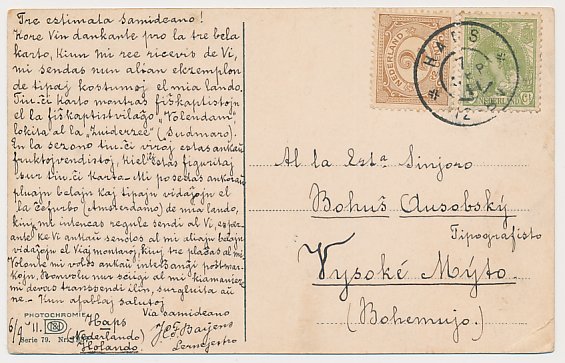 Tre estimata Samideano!
Kore Vin dankante pro la tre bela
karto, kiun mi ree ricevis de Vi,
mi sendas nun alian ekzemplon
de tipaj kostumoj el mia lando.
Tiu-ĉi karto montras fiŝkaptistojn
el la fiŝkaptistvilaĝo "Volendam"
lokita al la "Zuiderzee" (Sudmaro).
En la sezono tiu-ĉi viroj estas ankaŭ
fruktojvendistoj, kiel estas figuritaj
sur tiu-ĉi karto. Mi posedas ankoraŭ
pluajn belajn kaj tipajn vidaĵojn el
la ĉefurbo (Amsterdamo) de mia lando,
kiujn mi intencas regule sendi al Vi, esper-
ante ke Vi ankaŭ sendos al mi aliajn belajn
vidaĵojn el Viaj montaroj, kiuj tre plaĉas al mi.
Volonte mi volas ankaŭ interŝanĝi postmar-
kojn. Bonvolu nur sciigi al mi kiamaniere
mi devas transsendi ilin, surgluita aŭ
ne. Kun afablaj salutoj
Via samideano
6/9 '11. Haps
Nederlando
Holando
Lernejestro
PHOTOCHROMIE
Serie 79. Nr.
NEDERLAND
HAPS
Al la Esta Sinjoro
Bohuš Ausobský
Tipografisto
Vysoké Mýto
(Bohemujo)